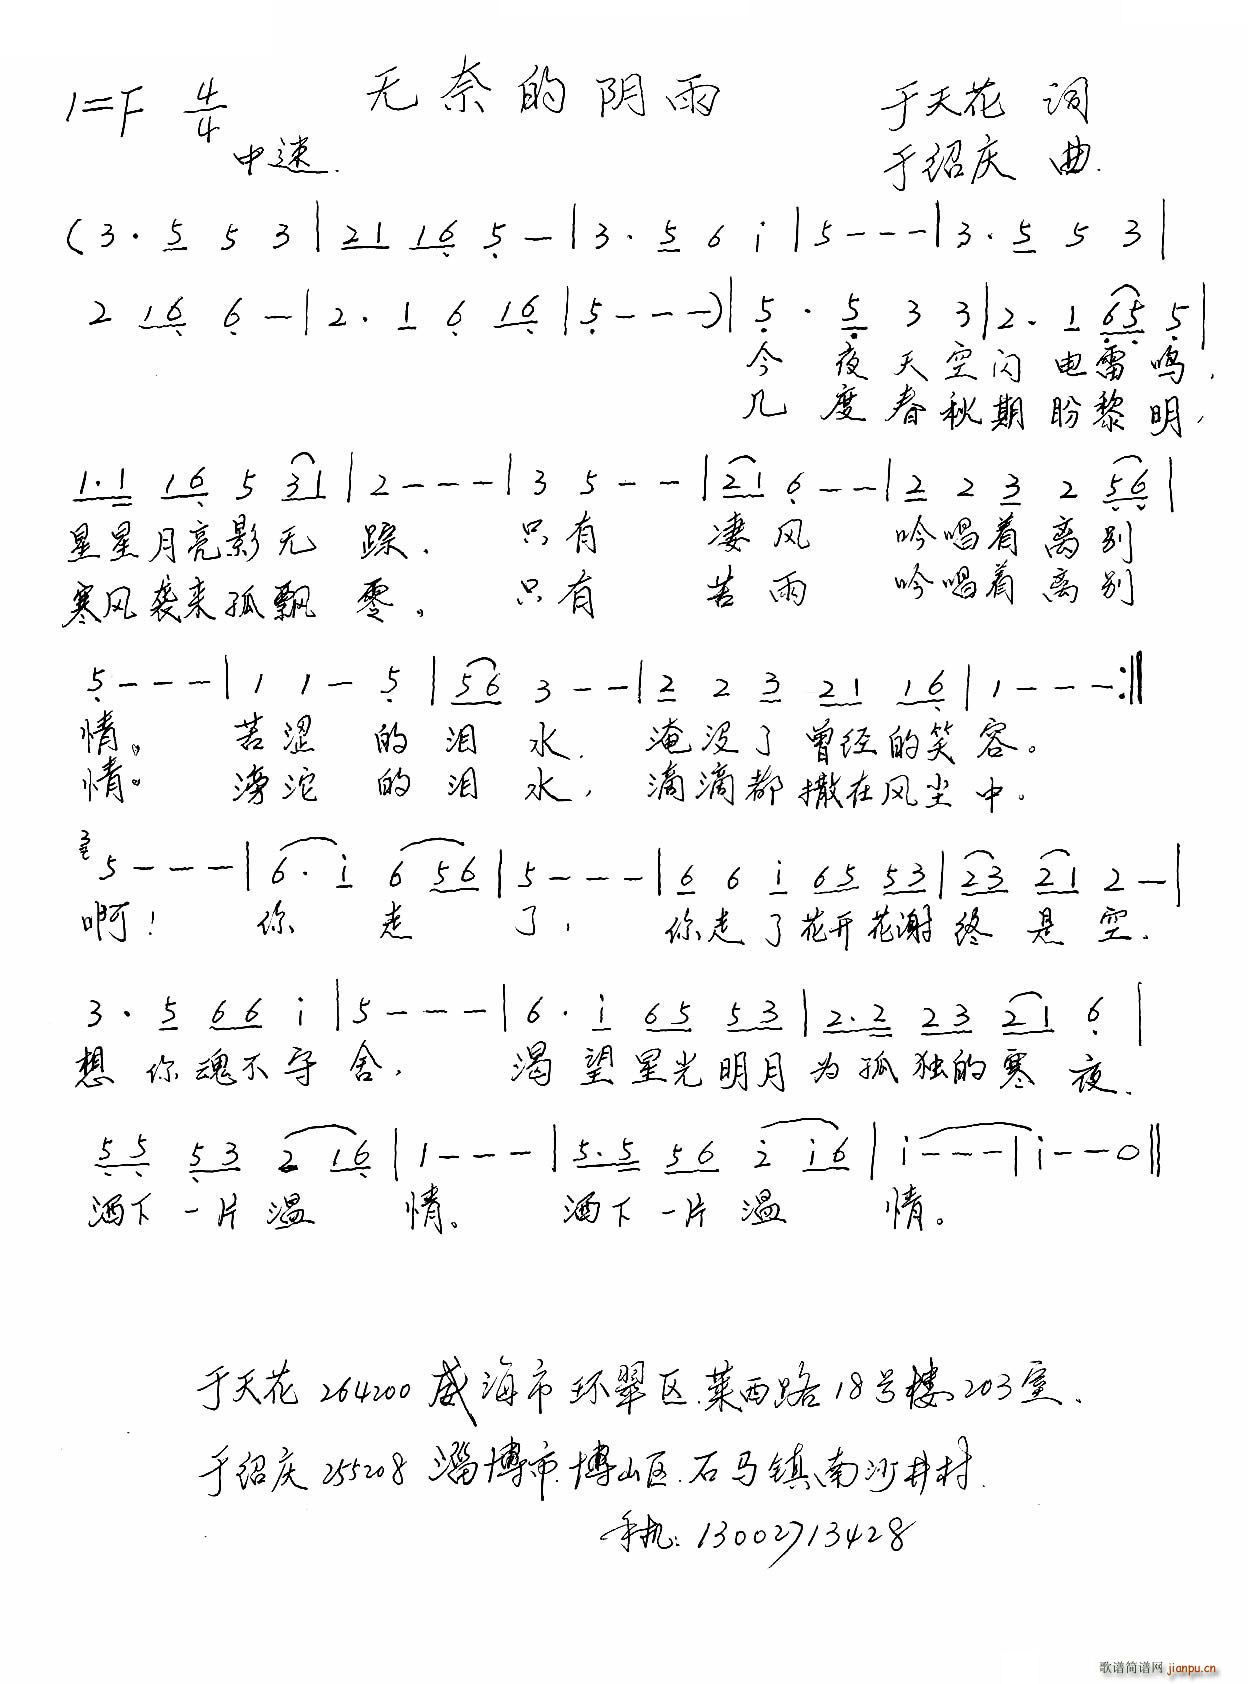 1=F 4/4 无奈的阴雨 于天花 词
中速. 于绍庆 曲.
(3· 5 5 3 | 21 16 5 — | 3· 5 6 i | 5 - - - | 3· 5 5 3 |
2 16 6 — | 2· 1 6 16 | 5 - - -) | 5· 5 3 3 | 2· 1 65 5 |
今夜天空闪电雷鸣,
几度春秋期盼黎明,
1·1 16 5 31 | 2 - - - | 3 5 - - | 21 6 - - | 2 2 3 2 56 |
星星月亮影无踪. 只有 凄风 吟唱着离别
寒风袭来孤飘零。 只有 苦雨 吟唱着离别
5 - - - | 1 1 - 5 | 56 3 - - | 2 2 3 21 16 | 1 - - - :||
情。 苦涩 的泪水. 淹没了曾经的笑容。
情。 滂沱 的泪水, 滴滴都撒在风尘中.
3 5 - - - | 6· i 6 56 | 5 - - - | 6 6 i 65 53 | 23 21 2 — |
啊! 你走了, 你走了花开花谢终是空.
3· 5 66 i | 5 - - - | 6· i 65 53 | 2·2 23 21 6 |
想你魂不守舍, 渴望星光明月为孤独的寒夜.
55 53 2 16 | 1 - - - | 5·5 56 i 2 i6 | i - - - | i - - 0 ||
洒下一片温情。 洒下一片温情。
于天花 264200 威海市环翠区.莱西路18号楼203室.
于绍庆 255208 淄博市.博山区.石马镇南沙井村.
手机: 13002713428
歌谱简谱网 jianpu.cn